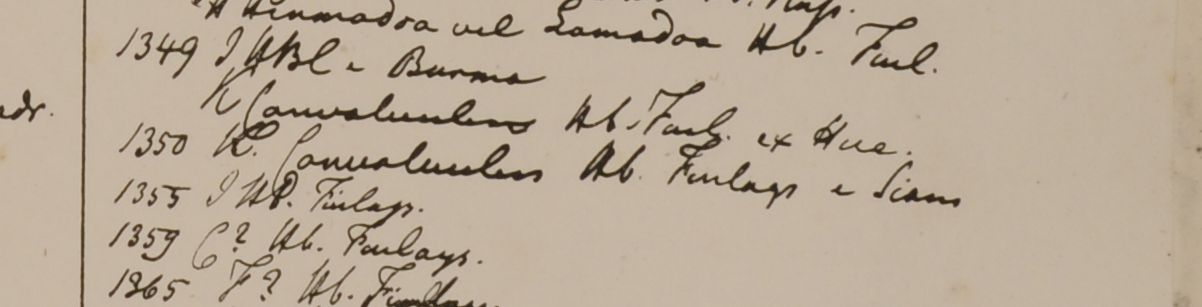 vel Lamadoa Hb. Finl.
1349 I HBl e Burma
K Convolvulus Hb. Finl. ex Hue.
1350 K. Convolvulus Hb. Finlays e Siam
1355 I HB. Finlays.
1359 C? Hb. Finlays.
1365 F? Hb.